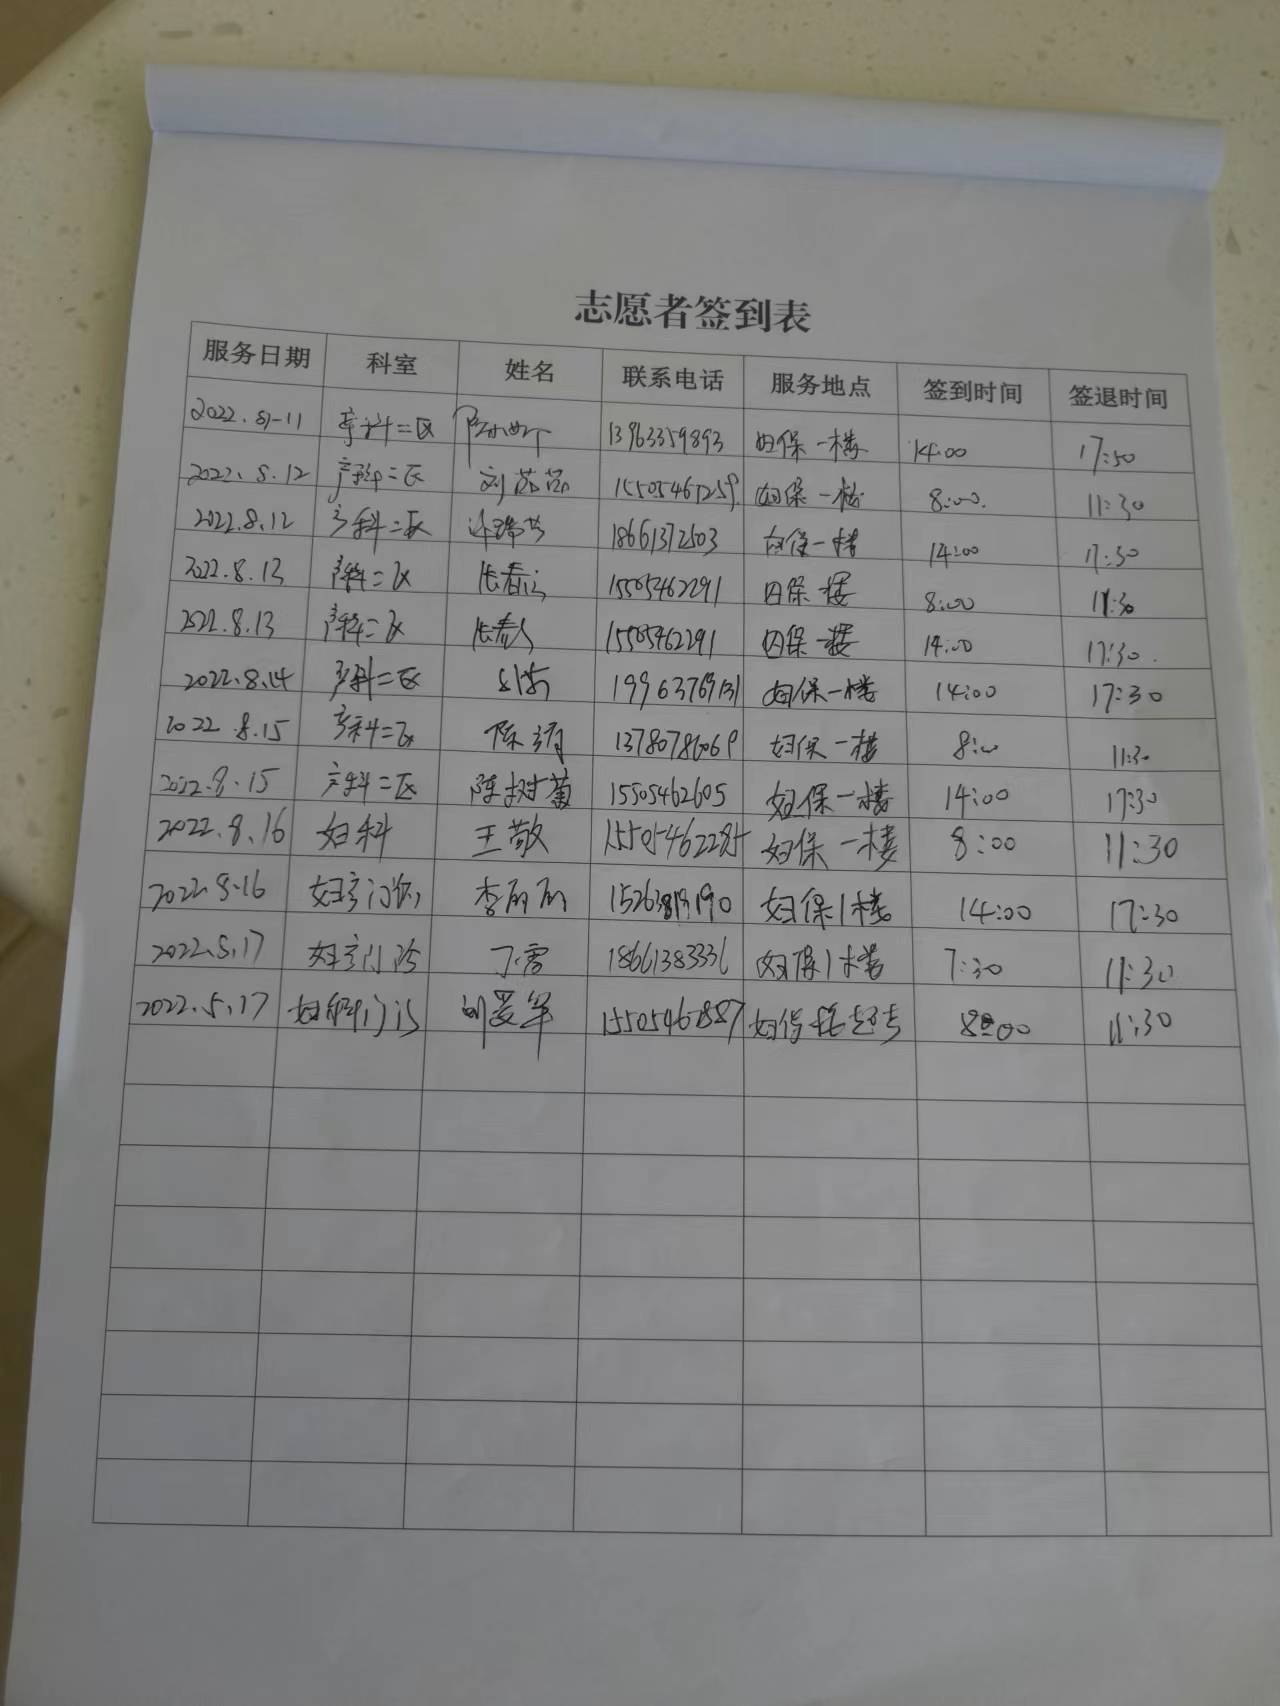 志愿者签到表
服务日期 科室 姓名 联系电话 服务地点 签到时间 签退时间
2022.8-11 产科二区 13963359893 妇保一楼 14:00 17:30
2022.8.12 产科二区 刘茹茹 15505461259 妇保一楼 8:00 11:30
2022.8.12 产科二区 许瑞芳 18661372503 妇保一楼 14:00 17:30
2022.8.13 产科二区 15505462291 妇保一楼 8:00 11:30
2022.8.13 产科二区 15505462291 妇保一楼 14:00 17:30
2022.8.14 产科二区 19963769131 妇保一楼 14:00 17:30
2022.8.15 产科二区 13780786069 妇保一楼 8:00 11:30
2022.8.15 产科二区 陈树菊 15505462605 妇保一楼 14:00 17:30
2022.8.16 妇科 王敬 15505462285 妇保一楼 8:00 11:30
2022.8.16 妇产门诊 李丽丽 妇保1楼 14:00 17:30
2022.8.17 妇产门诊 丁雪 18661383336 妇保1楼 7:30 11:30
2022.5.17 刘爱军 15505462887 8:00 11:30